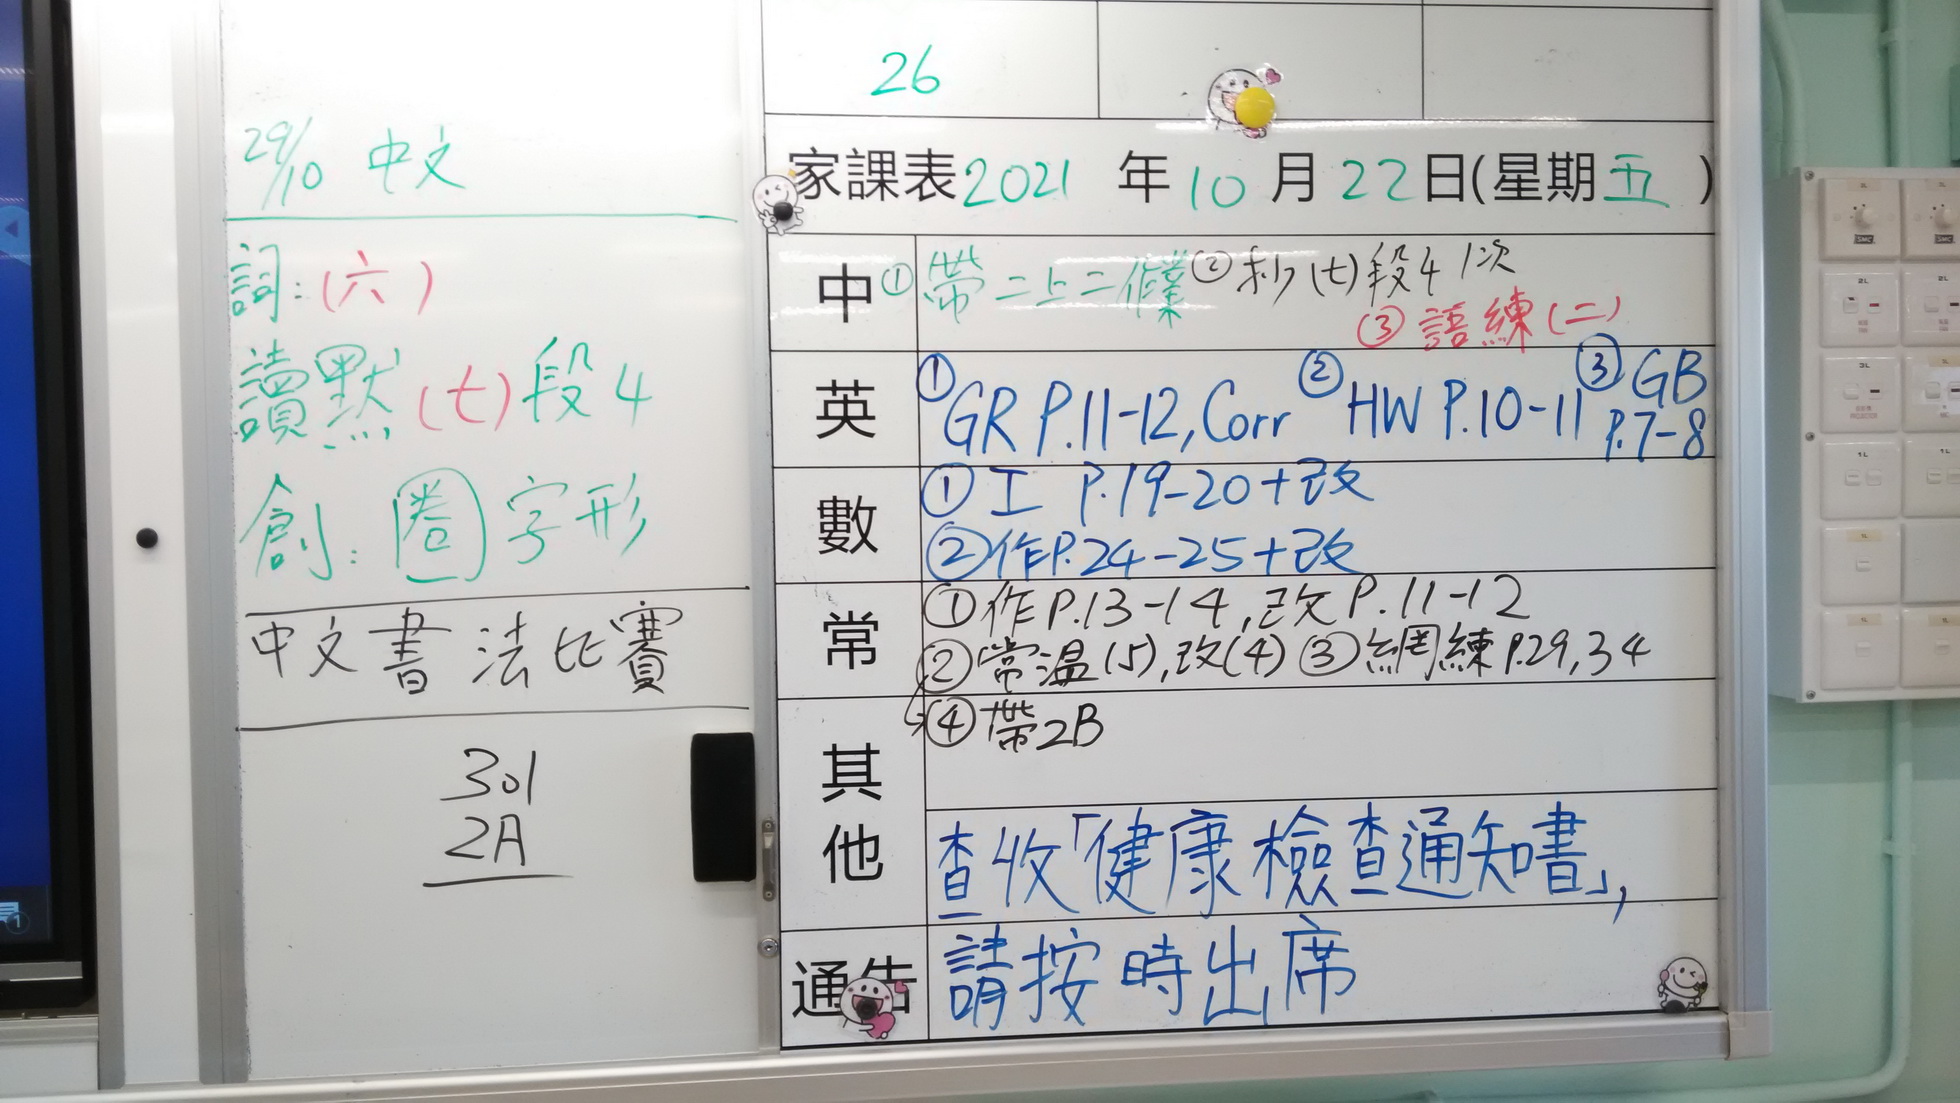 29/10 中文
詞:(六)
讀默(七)段4
創:圈字形
中文書法比賽
301
2A
26
家課表2021年10月22日(星期五)
中 ①帶二上二作業 ②抄(七)段4 1次
③語練(二)
英 ①GR P.11-12, Corr ②HW P.10-11 ③GB P.7-8
數 ①工 P.19-20+改
②作P.24-25+改
常 ①作P.13-14,改P.11-12
②常温(5),改(4) ③網練P.29,34
④帶2B
其他
查收「健康檢查通知書」,
通告 請按時出席